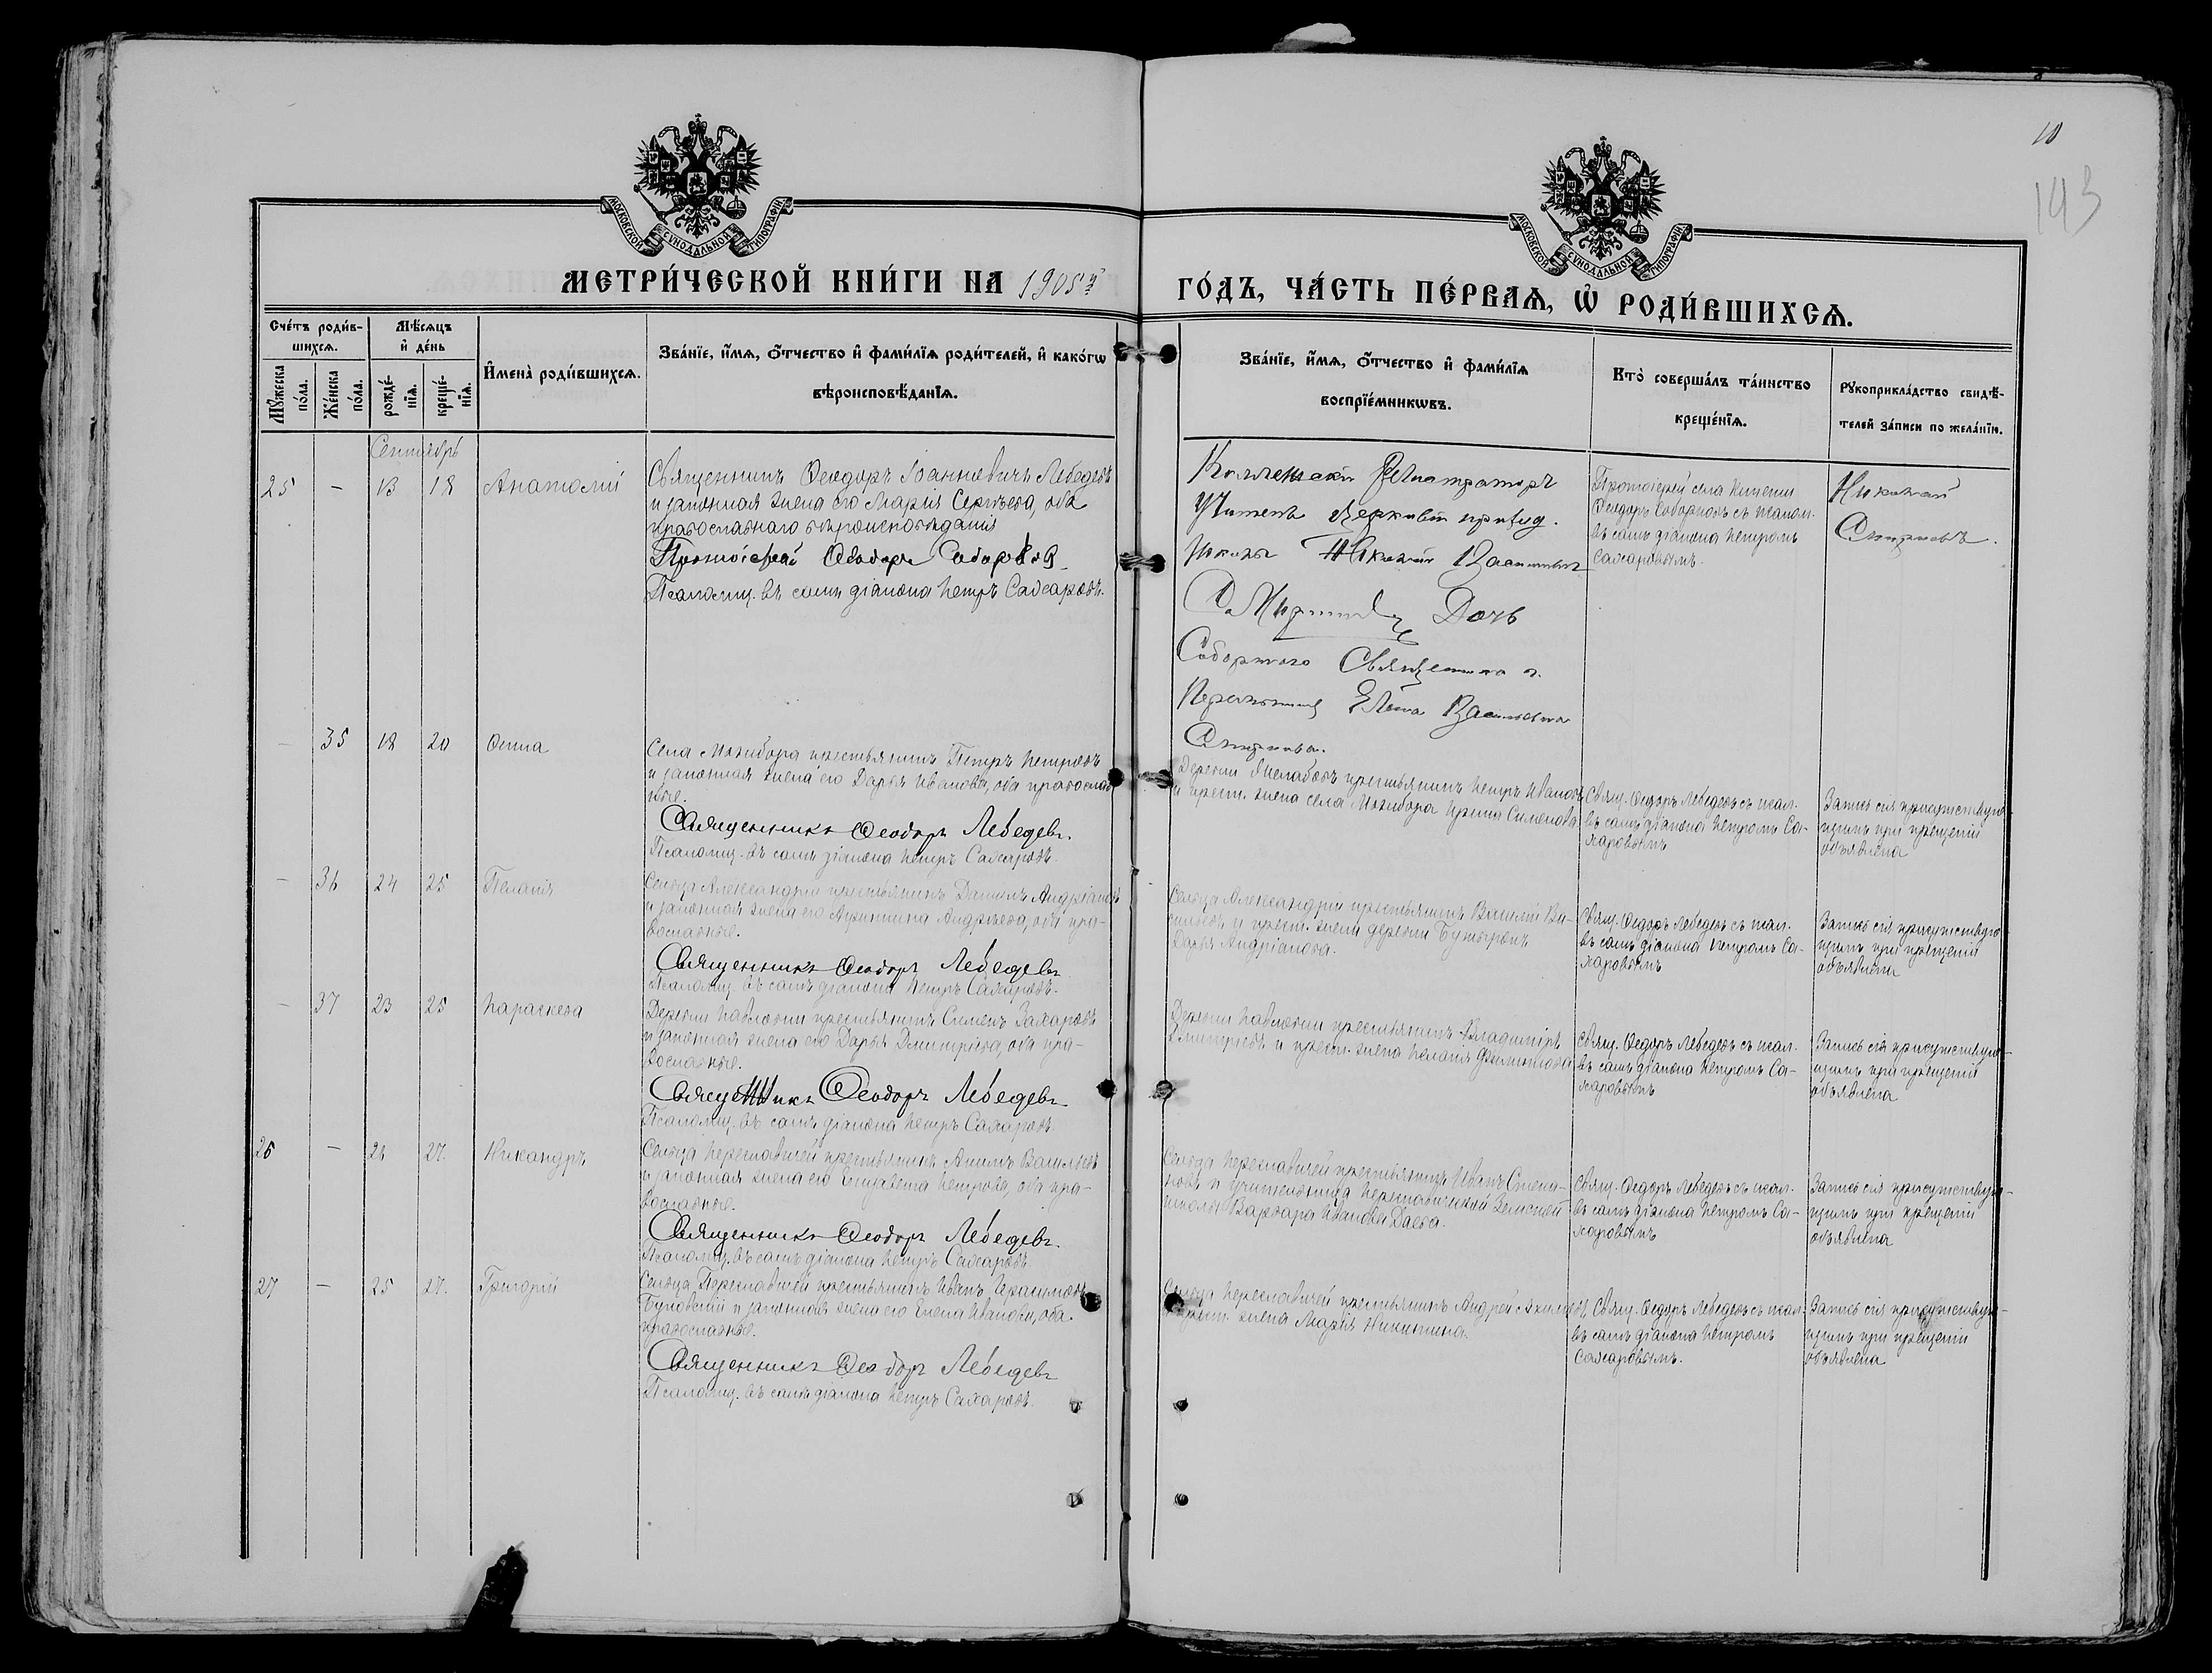 10
193
МОСКОВСКОЙ СѴНОДАЛЬНОЙ ТИПОГРАФІИ
МОСКОВСКОЙ СѴНОДАЛЬНОЙ ТИПОГРАФІИ
МЕТРИ́ЧЕСКОЙ КНИ́ГИ НА 1905й
ГО́ДЪ, ЧА́СТЬ ПЕ́РВАѦ, Ѡ҆ РОДИ́ВШИХСѦ.
Сче́тъ роди́в-
шихсѧ.
Мꙋ́жеска по́ла.
Же́нска по́ла.
Мѣ́сѧцъ
и҆ де́нь
рожде́-
нїѧ.
креще́-
нїѧ.
И҆мена̀ роди́вшихсѧ.
Зва́нїе, и҆́мѧ, ѻ҆́тчество и҆ фами́лїѧ роди́телей, и҆ како́гѡ
вѣроисповѣ́данїѧ.
Зва́нїе, и҆́мѧ, ѻ҆́тчество и҆ фами́лїѧ
воспрїе́мникѡвъ.
Кто̀ соверша́лъ та́инство
креще́нїѧ.
Рꙋкоприкла́дство свидѣ́-
телей за́писи по жела́нїю.
Сентябрь
25 — 13 18 Анатолій
Священникъ Ѳеодоръ Іоанновичъ Лебедевъ
и законная жена его Марія Сергѣева, оба
православнаго вѣроисповѣданія
Протоіерей Ѳеодоръ Соборновъ
Псаломщ. въ санѣ діакона Петръ Сахаровъ.
Коллежскій Регистраторъ
Учитель церковно приход.
школы Николай Васильевичъ
Смирновъ Дочь
Соборнаго Священника г.
Елена Васильевна
Смирнова.
Протоіерей села
Ѳеодоръ Соборновъ съ псалом.
въ санѣ діакона Петромъ
Сахаровымъ.
Николай
Смирновъ.
— 35 18 20 Анна
Села Можибора крестьянинъ Петръ Петровъ
и законная жена его Дарья Иванова, оба православ
ные.
Священникъ Ѳеодоръ Лебедевъ.
Псаломщ. въ санѣ діакона Петръ Сахаровъ.
Деревни крестьянинъ Петръ Ивановъ
и крест. жена села Можибора Ирина Симонова
Свящ. Ѳеодоръ Лебедевъ съ псал.
въ санѣ діакона Петромъ Са-
харовымъ
Запись сія присутствую-
щимъ при крещеніи
объявлена
— 36 24 25 Пелагія
Сельца Александріи крестьянинъ Даніилъ Андріановъ
и законная жена его Андреева, оба пра-
вославные.
Священникъ Ѳеодоръ Лебедевъ
Псаломщ. въ санѣ діакона Петръ Сахаровъ.
Сельца Александріи крестьянинъ Василій Ва-
сильевъ и крест. жена деревни
Дарья Андріанова.
Свящ. Ѳеодоръ Лебедевъ съ псал.
въ санѣ діакона Петромъ Са-
харовымъ
Запись сія присутствую-
щимъ при крещеніи
объявлена
— 37 23 25 Параскева
Деревни Павловки крестьянинъ Симонъ Захаровъ
и законная жена его Дарья Дмитріева, оба пра-
вославные.
Священникъ Ѳеодоръ Лебедевъ
Псаломщ. въ санѣ діакона Петръ Сахаровъ.
Деревни Павловки крестьянинъ Владиміръ
Дмитріевъ и крест. жена Пелагія Филиппова
Свящ. Ѳеодоръ Лебедевъ съ псал.
въ санѣ діакона Петромъ Са-
харовымъ
Запись сія присутствую-
щимъ при крещеніи
объявлена
26 — 24 27. Никандръ
Сельца Переславичей крестьянинъ Акимъ Васильевъ
и законная жена его Елизавета Петрова, оба пра-
вославные.
Священникъ Ѳеодоръ Лебедевъ.
Псаломщ. въ санѣ діакона Петръ Сахаровъ.
Сельца Переславичей крестьянинъ Иванъ Степа-
новъ и учительница Переславичской Земской
школы Варвара Иванова
Свящ. Ѳеодоръ Лебедевъ съ псал.
въ санѣ діакона Петромъ Са-
харовымъ
Запись сія присутствую-
щимъ при крещеніи
объявлена
27 — 25 27. Григорій
Сельца Переславичей крестьянинъ Иванъ Герасимовъ
и законная жена его Елена Иванова, оба
православные.
Священникъ Ѳеодоръ Лебедевъ
Псаломщ. въ санѣ діакона Петръ Сахаровъ.
Сельца Переславичей крестьянинъ Андрей Акимовъ
и крест. жена Марія Никитина.
Свящ. Ѳеодоръ Лебедевъ съ псал.
въ санѣ діакона Петромъ
Сахаровымъ.
Запись сія присутствую-
щимъ при крещеніи
объявлена